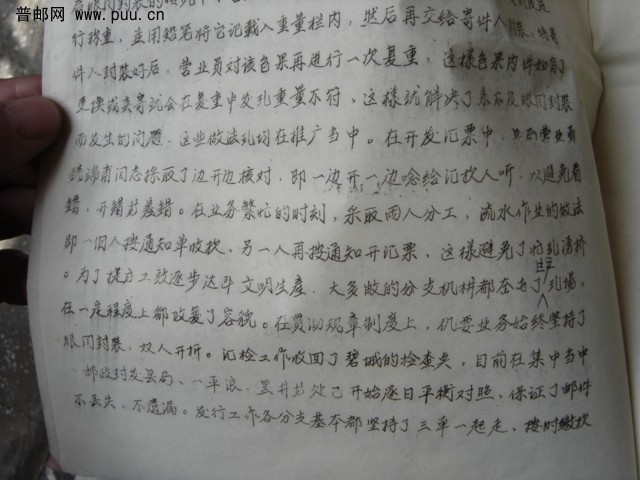 普邮网 www.puu.cn
行称重，并用铅笔将它记载入重量栏内，然后再交给寄件人
件人封装好后，营业员对该包果再进行一次复重，这样包果内件如有了
更换或夹寄就会在复重中发现重量不符，这样就解决了来不及眼同封装
而发生的问题，这些做法现均在推广当中。在开发汇票中，营业员
同志採取了边开边核对，即一边开一边唸给汇款人听，以避免看
错、开错等差错。在业务繁忙的时刻，采取两人分工，流水作业的做法
即一個人按通知单收款、另一人再按通知开汇票，这样避免了忙乱
。为了提高工效逐步达到文明生产，大多数的分支机构都在了生产现场，
在一定程度上都改变了容貌。在贯彻规章制度上，机要业务始终坚持了
眼同封装，双人开拆。汇检工作收回了的检查关，目前在集中当中
邮政封发号码、一平浪、黑井等处已开始逐日平衡对照，保证了邮件
不丢失、不遗漏。发行工作各分支基本都坚持了三单一起走、按时缴款